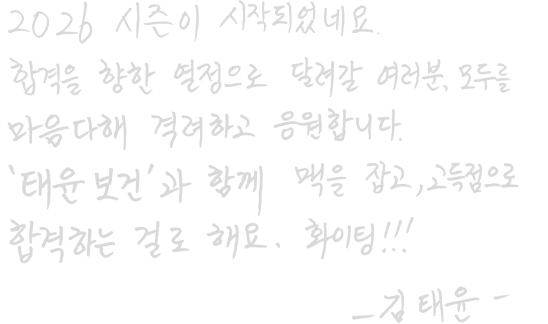 2026 시즌이 시작되었네요.
합격을 향한 열정으로 달려갈 여러분, 모두를
마음다해 격려하고 응원합니다.
'태윤보건'과 함께 맥을 잡고, 고득점으로
합격하는 걸로 해요. 화이팅!!!
- 김태윤 -